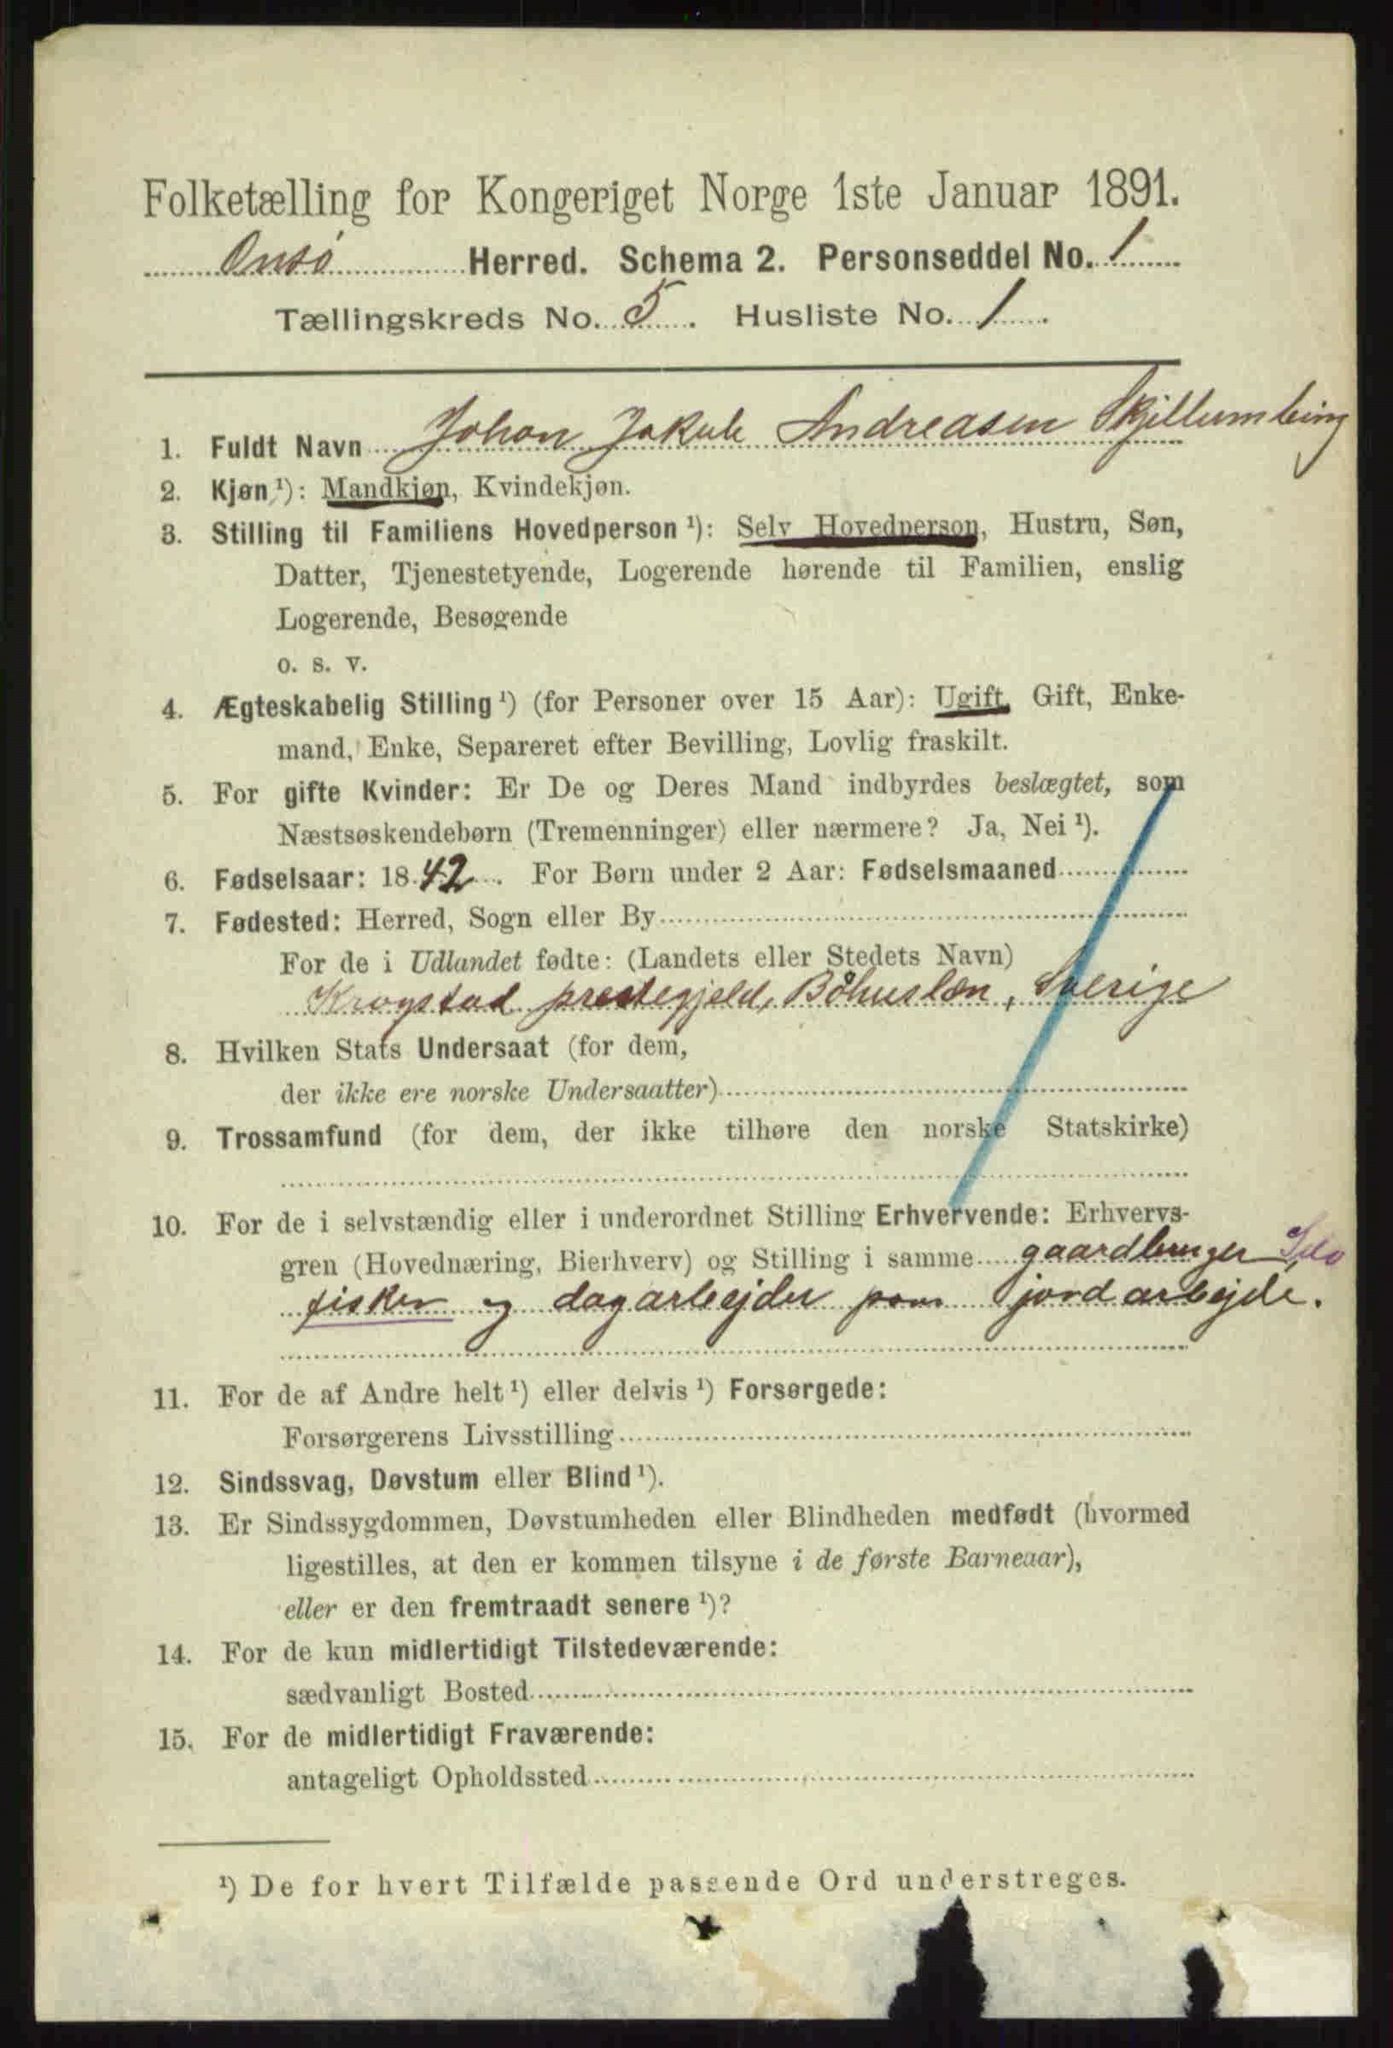 Folketælling for Kongeriget Norge 1ste Januar 1891.
Onsö Herred. Schema 2. Personseddel No. 1
Tællingskreds No. 5. Husliste No. 1.
1. Fuldt Navn Johan Jakob Andreasen Skjellumbing
2. Kjøn ¹): Mandkjøn, Kvindekjøn.
3. Stilling til Familiens Hovedperson ¹): Selv Hovedperson, Hustru, Søn,
Datter, Tjenestetyende, Logerende hørende til Familien, enslig
Logerende, Besøgende
o. s. v.
4. Ægteskabelig Stilling ¹) (for Personer over 15 Aar): Ugift, Gift, Enke-
mand, Enke, Separeret efter Bevilling, Lovlig fraskilt.
5. For gifte Kvinder: Er De og Deres Mand indbyrdes beslægtet, som
Næstsøskendebørn (Tremenninger) eller nærmere? Ja, Nei ¹).
6. Fødselsaar: 1842. For Børn under 2 Aar: Fødselsmaaned
7. Fødested: Herred, Sogn eller By
For de i Udlandet fødte: (Landets eller Stedets Navn)
Krogstad prestegjeld, Båhuslæn, Sverige
8. Hvilken Stats Undersaat (for dem,
der ikke ere norske Undersaatter)
9. Trossamfund (for dem, der ikke tilhøre den norske Statskirke)
10. For de i selvstændig eller i underordnet Stilling Erhvervende: Erhvervs-
gren (Hovednæring, Bierhverv) og Stilling i samme gaardbruger Selv
fisker og dagarbejder jordarbejde.
11. For de af Andre helt ¹) eller delvis ¹) Forsørgede:
Forsørgerens Livsstilling
12. Sindssvag, Døvstum eller Blind ¹).
13. Er Sindssygdommen, Døvstumheden eller Blindheden medfødt (hvormed
ligestilles, at den er kommen tilsyne i de første Barneaar),
eller er den fremtraadt senere ¹)?
14. For de kun midlertidigt Tilstedeværende:
sædvanligt Bosted
15. For de midlertidigt Fraværende:
antageligt Opholdssted
¹) De for hvert Tilfælde passende Ord understreges.